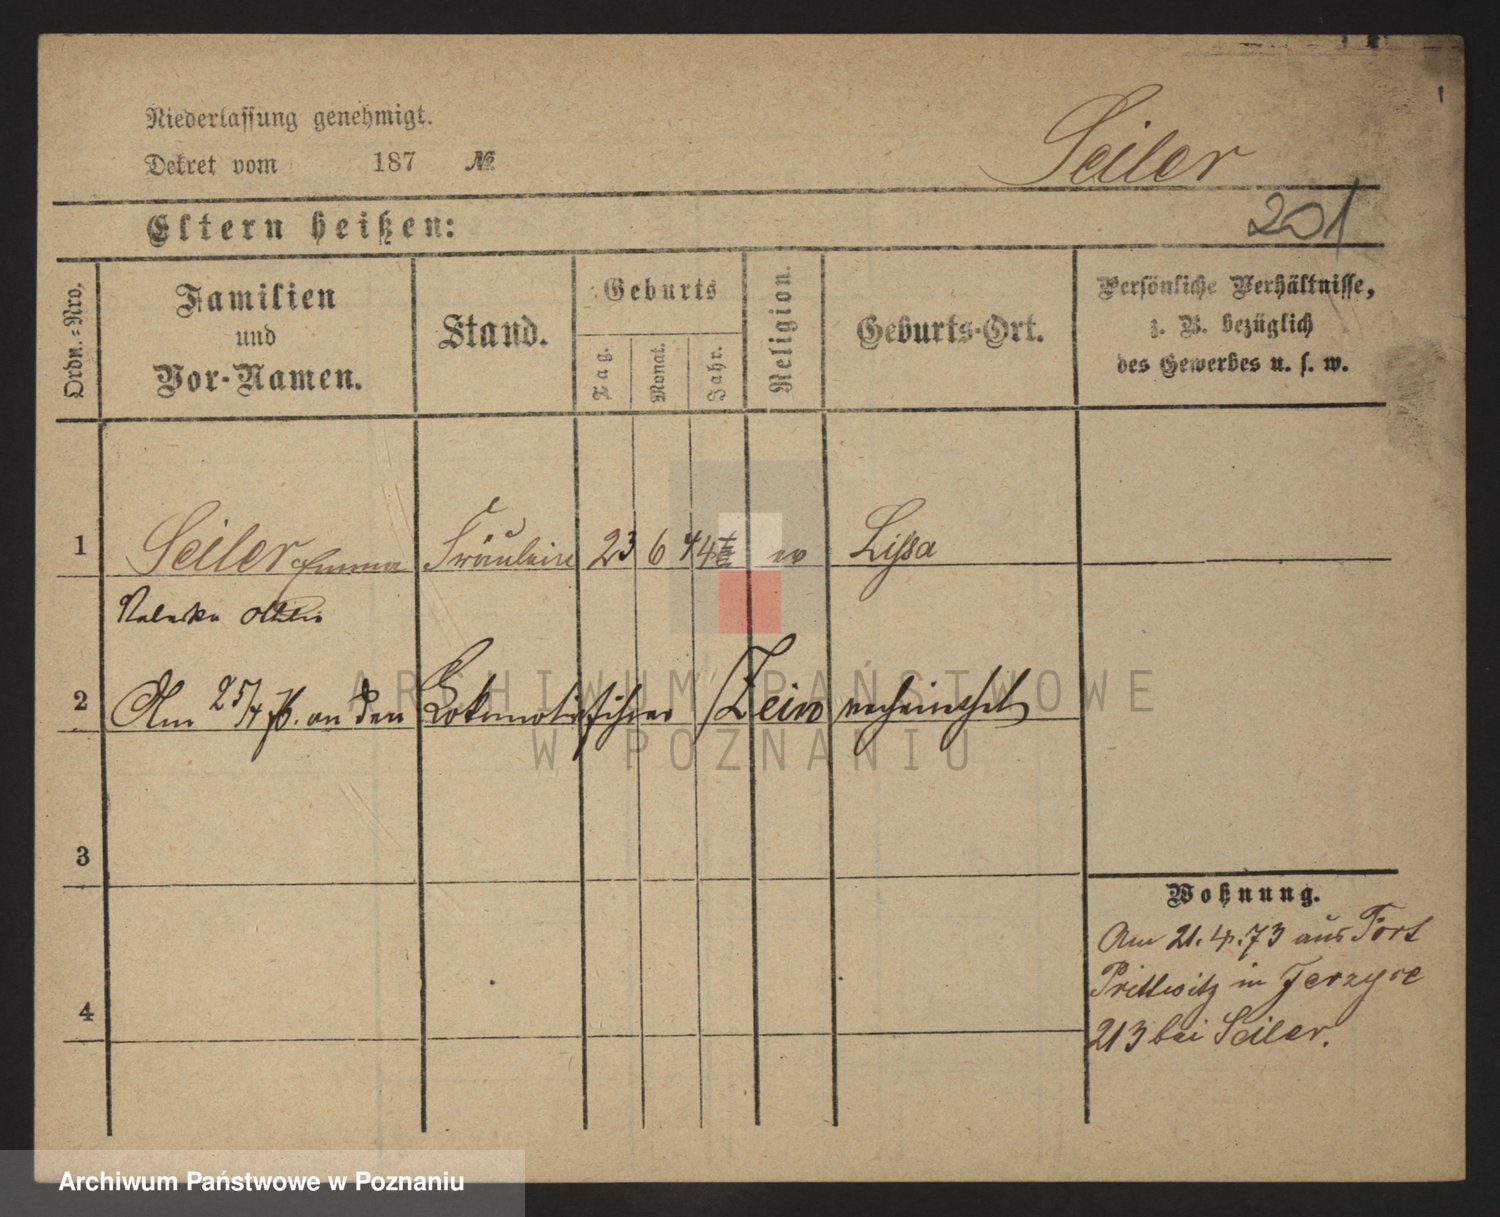 Niederlassung genehmigt.
Dekret vom 187 №
Seiler
Eltern heißen:
201
Ordn.-Nro.
Familien
und
Vor-Namen.
Stand.
Geburts
Tag.
Monat.
Jahr.
Religion.
Geburts-Ort.
Persönliche Verhältnisse,
z. B. bezüglich
des Gewerbes u. s. w.
1 Seiler Emma Fräulein 23 6 44 ev Lissa
2 Am 25/4 76. an den Lokomotivführer verheirathet
3
4
Wohnung.
Am 21.4.73 aus Fort
Prittwitz in Jerzyce
213 bei Seiler.
ARCHIWUM PAŃSTWOWE
W POZNANIU
Archiwum Państwowe w Poznaniu